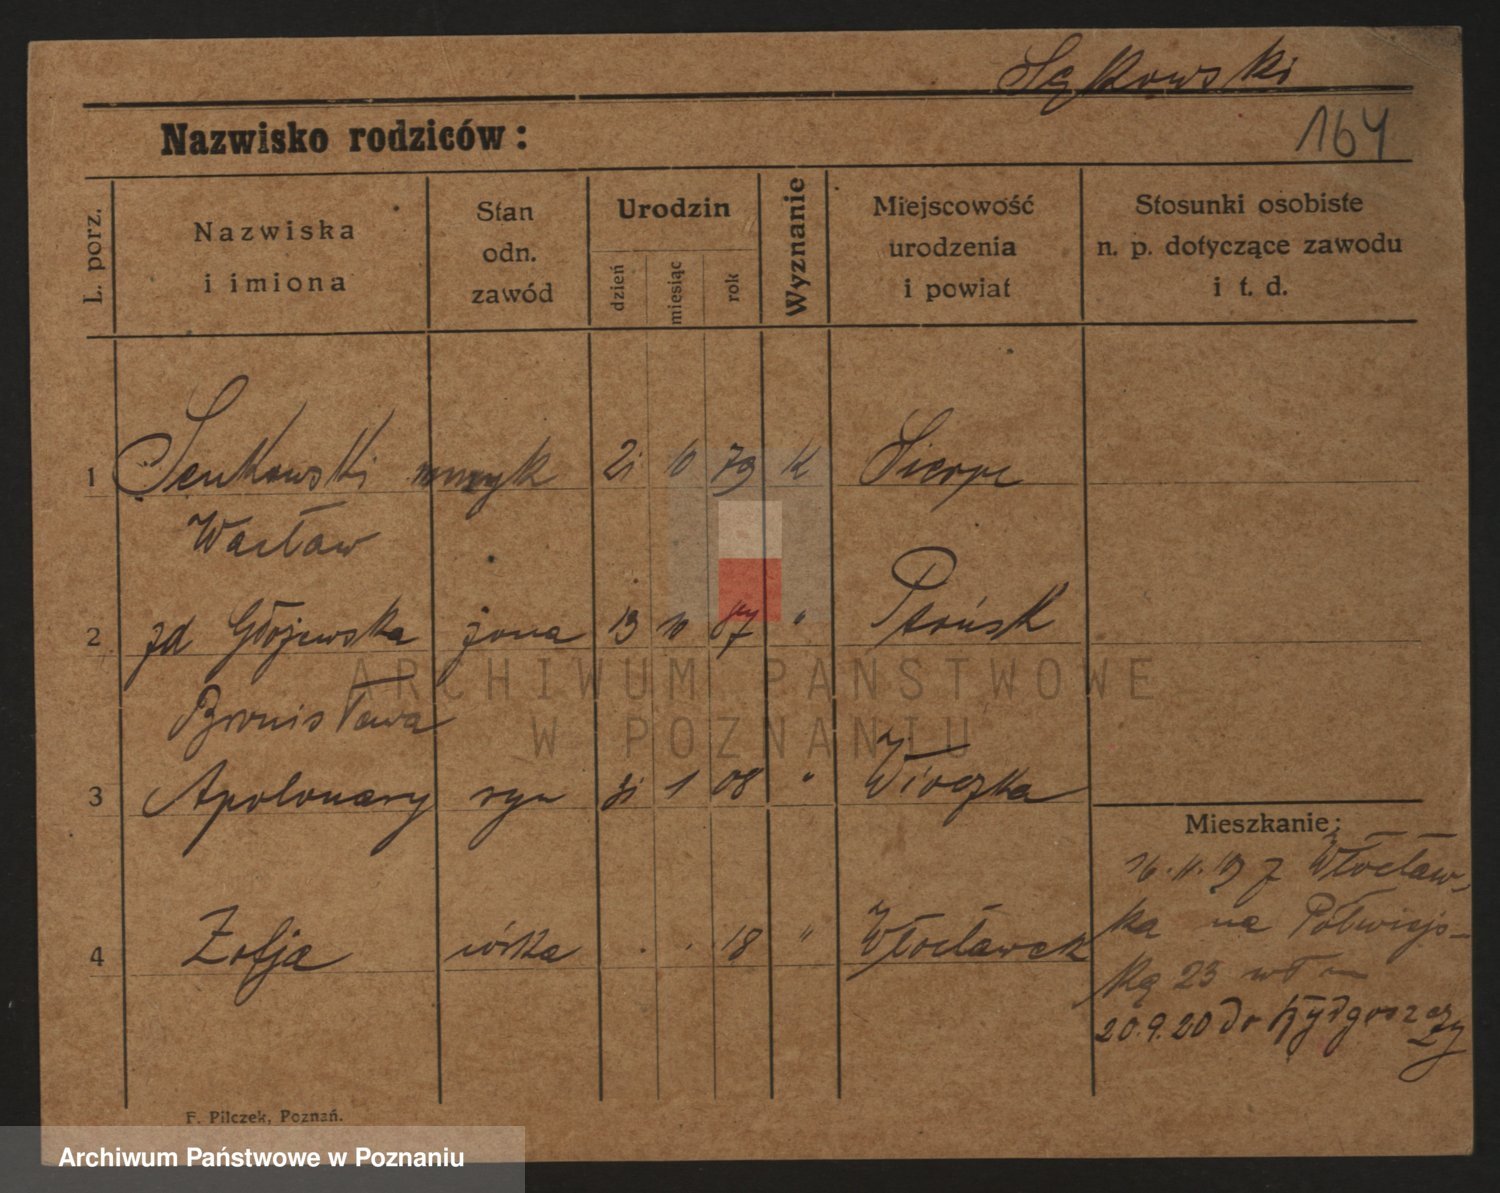 Sękowski
164
Nazwisko rodziców:
L. porz.
Nazwiska
i imiona
Stan
odn.
zawód
Urodzin
dzień
miesiąc
rok
Wyznanie
Miejscowość
urodzenia
i powiat
Stosunki osobiste
n. p. dotyczące zawodu
i t. d.
1 Senkowski muzyk 21 10 79 k Sierpc
Wacław
2 zd Głojewska żona 13 10 87 " Płońsk
Bronisława
3 Apolonary syn 31 1 08 "
4 Zofja córka . . 18 " Włocławek
Mieszkanie:
16.11.19 z Włocław-
ka na Półwiejs-
ką 25
20.9.20 do Bydgoszczy
F. Pilczek, Poznań.
ARCHIWUM PAŃSTWOWE
W POZNANIU
Archiwum Państwowe w Poznaniu